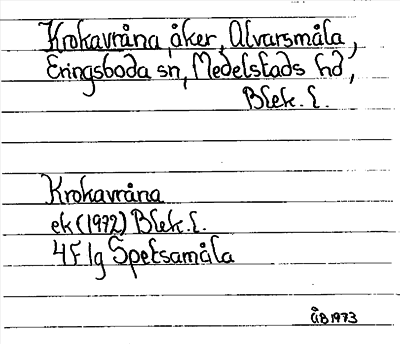 Krokavråna åker, Alvarsmåla,
Eringsboda sn, Medelstads hd,
Blek. l.
Krokavråna
ek (1972) Blek. l.
4F 1g Spetsamåla
ÅB 1973